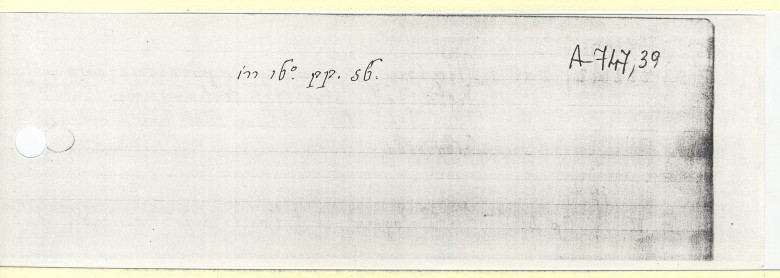 in 16.° pp. 36.
A-747,39